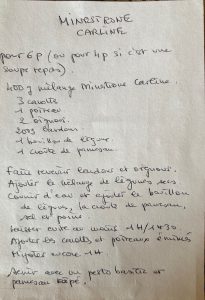 MINESTRONE
CARLINE
pour 6p (ou pour 4p si c'est une
soupe repas).
400g mélange Minestrone Carline.
3 carottes
1 poireau
2 oignons.
200g lardons.
1 bouillon de légume
1 croûte de parmesan
Faire revenir lardons et oignons.
Ajouter le mélange de légumes secs.
Couvrir d'eau et ajouter le bouillon
de légumes, la croûte de parmesan,
sel et poivre
Laisser cuire au moins 1H/1H30
Ajouter les carottes et poireaux émincés
Mijoter encore 1H
Servir avec un pesto basilic et
parmesan rapé.